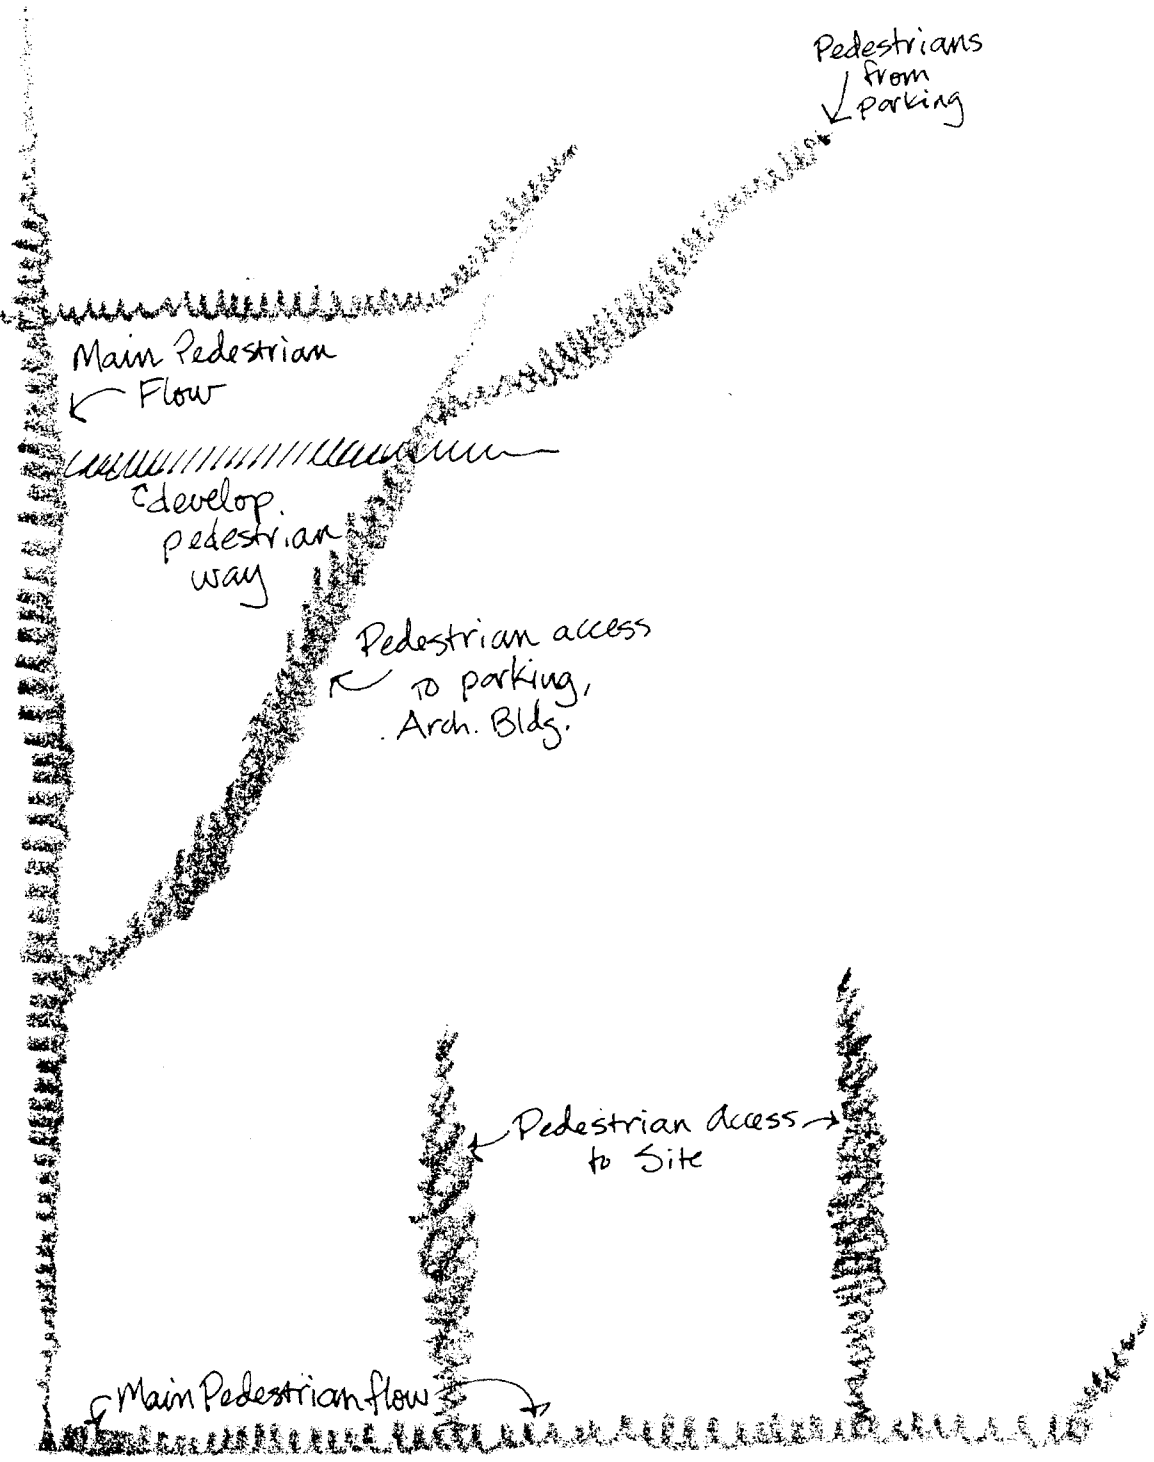 Pedestrians
from
parking
Main Pedestrian
Flow
develop.
pedestrian
way
Pedestrian access
To parking,
Arch. Bldg.
Pedestrian access
to Site
Main Pedestrian flow